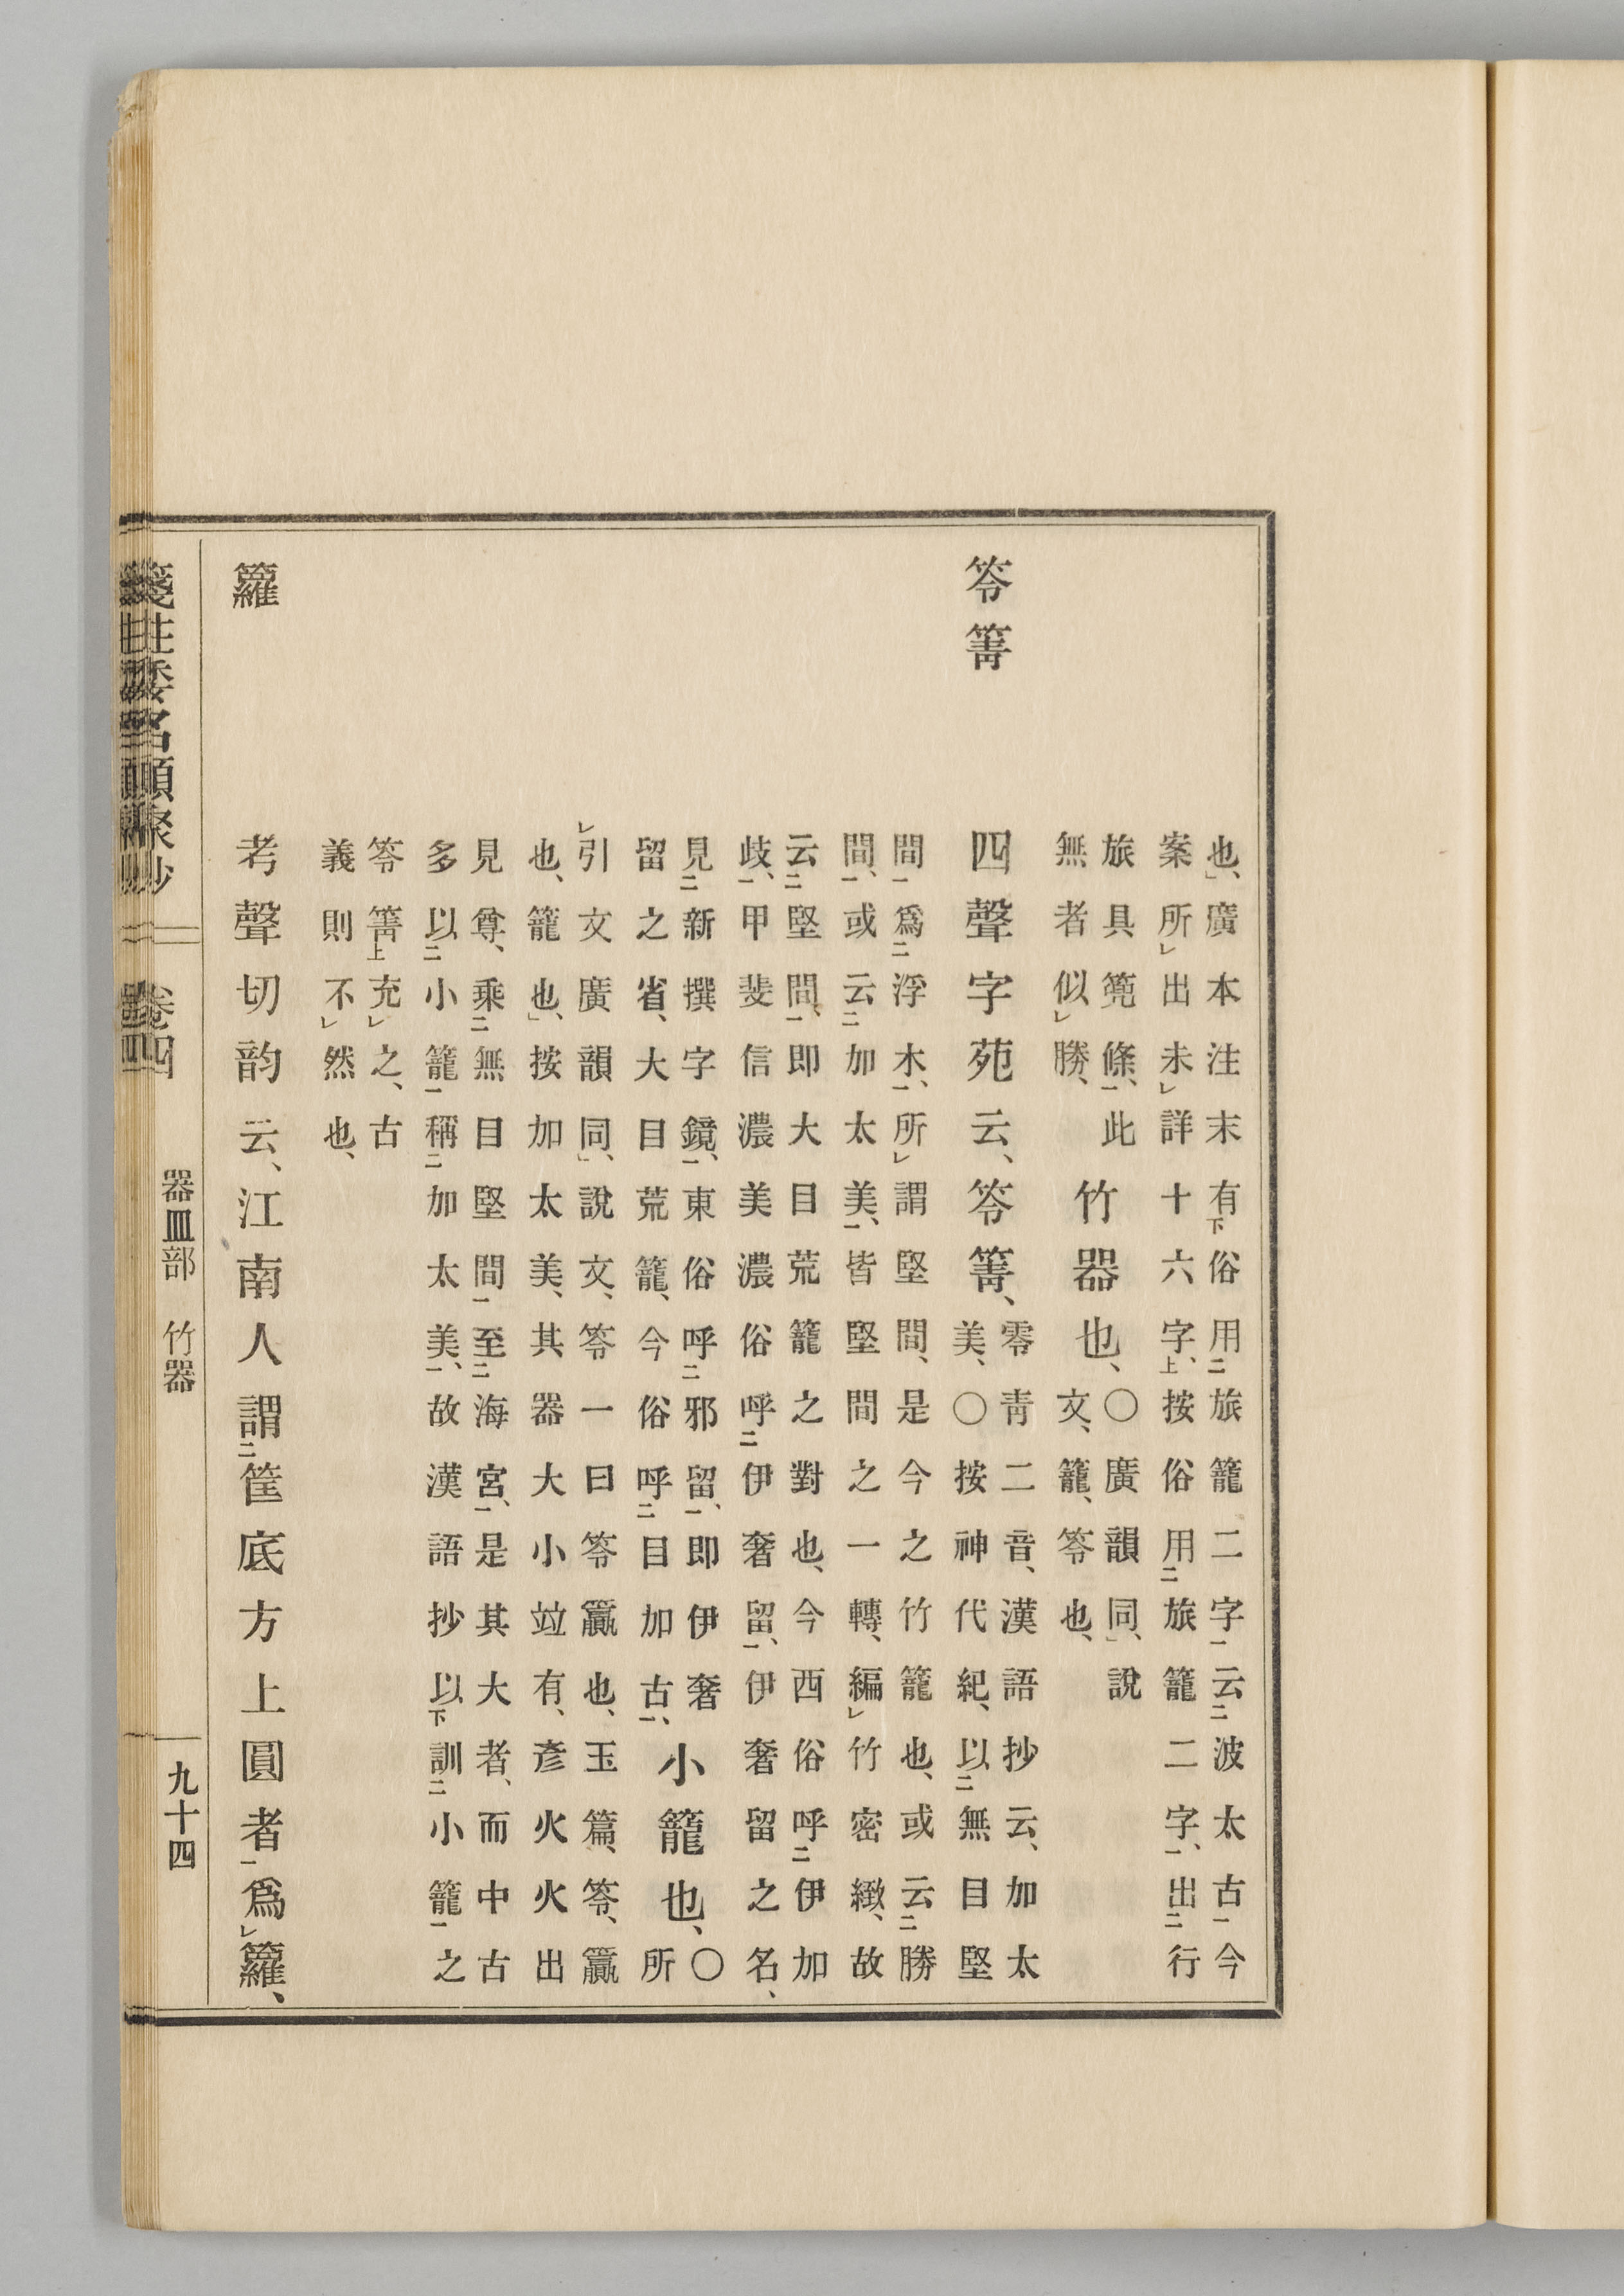 也、廣本注末有下俗用二旅籠二字一云二波太古一今
案所レ出未レ詳十六字上、按俗用二旅籠二字一、出二行
旅具篼條一、此
無者似レ勝、
竹器也、
〇廣韻同、說
文、籠、笭也、
笭箐
四聲字苑云、笭箐、
零青二音、漢語抄云、加太
美、〇按神代紀、以二無目堅
間一爲二浮木一、所レ謂堅間、是今之竹籠也、或云二勝
間一、或云二加太美一、皆堅間之一轉、編レ竹密緻、故
云二堅間一、即大目荒籠之對也、今西俗呼二伊加
歧一、甲斐信濃美濃俗呼二伊奢留一、伊奢留之名、
見二新撰字鏡一、東俗呼二邪留一、即伊奢
留之省、大目荒籠、今俗呼二目加古一、
小籠也、
〇所
レ引文廣韻同、說文、笭一曰笭籯也、玉篇、笭、籯
也、籠也、按加太美、其器大小竝有、彥火火出
見尊、乘二無目堅間一至二海宮一、是其大者、而中古
多以二小籠一稱二加太美一、故漢語抄以下訓二小籠一之
笭箐上充レ之、古
義則不レ然也、
籮
考聲切韵云、江南人謂二筐底方上圓者一爲レ籮、
箋註倭名類聚抄
卷四
器皿部 竹器
九十四